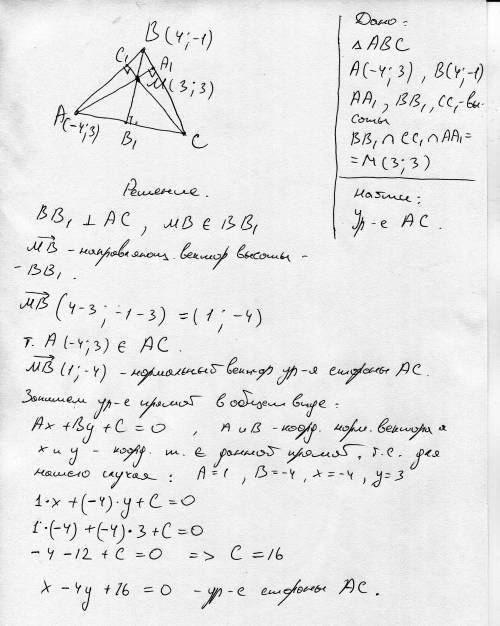 B(4;-1)
C₁
A₁
M(3;3)
A(-4;3)
B₁
C
Дано:
△ABC
A(-4;3), B(4;-1)
AA₁, BB₁, CC₁-вы-
соты
BB₁ ∩ CC₁ ∩ AA₁ =
= M(3;3)
Найти:
Ур-е AC.
Решение.
BB₁ ⊥ AC, MB ∈ BB₁
MB⃗ - направляющ. вектор высоты -
- BB₁.
MB⃗ (4-3; -1-3) = (1; -4)
т. A(-4;3) ∈ AC.
MB⃗ (1;-4) - нормальный вектор ур-я стороны AC.
Запишем ур-е прямой в общем виде:
Ax + By + C = 0, A и B - коорд. норм. вектора и
x и y - коорд. т. ∈ данной прямой, т.е. для
нашего случая: A=1, B=-4, x=-4, y=3
1·x + (-4)·y + C = 0
1·(-4) + (-4)·3 + C = 0
-4 -12 + C = 0 => C = 16
x - 4y + 16 = 0 - ур-е стороны AC.